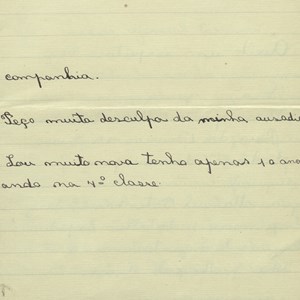 companhia.
Peço muita desculpa da minha
Sou muito nova tenho apenas 10 ano
ando na 4º classe.